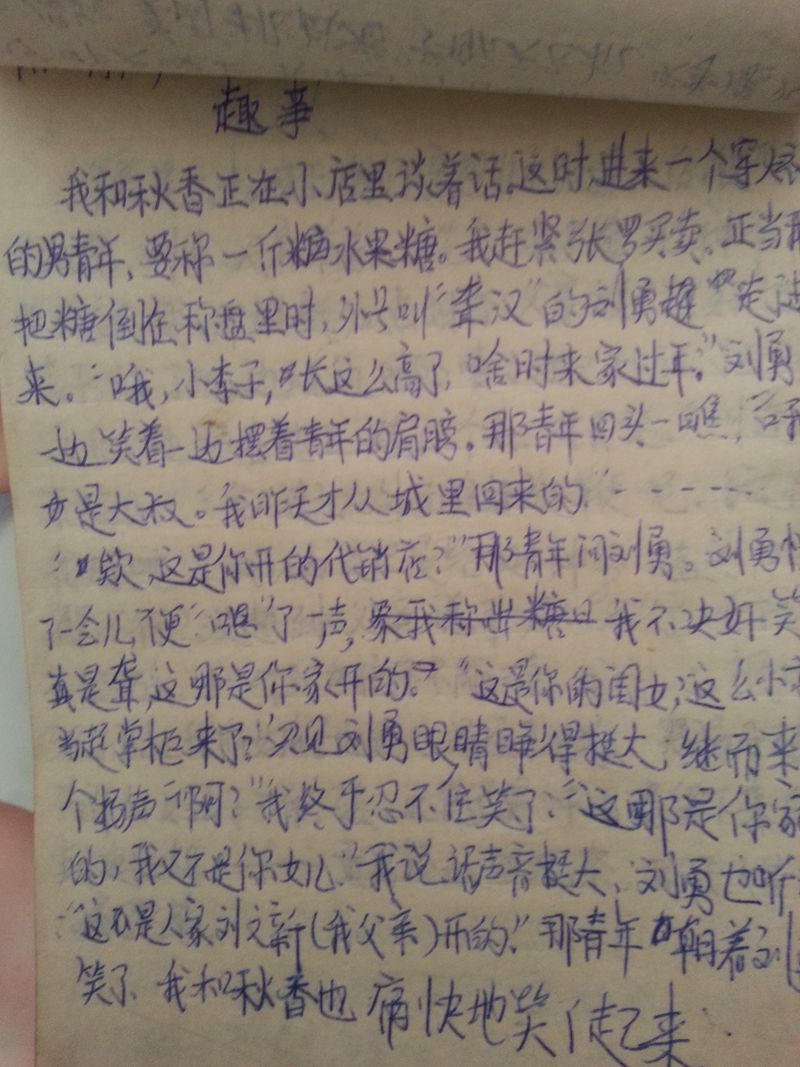 趣事
我和秋香正在小店里谈着话,这时,进来一个穿
的男青年,要称一斤糖水果糖。我赶紧张罗买卖,正当
把糖倒在称盘里时,外号叫“聋汉”的刘勇 走进
来。“哦,小李子,长这么高了,啥时来家过年。”刘勇
一边笑着一边摆着青年的肩膀。那青年回头一瞧,
是大叔。我昨天才从城里回来的”------
“欸,这是你开的代销店?”那青年问刘勇。刘勇
了一会儿便“嗯”了一声,象我称出糖 我不决好笑
真是聋,这那是你家开的。”“这是你的闺女;这么小
当起掌柜来了?”只见刘勇眼睛睁得挺大,继而来
个扬声“啊?”我终于忍不住笑了:“这那是你家
的,我又不是你女儿”我说话声音挺大,刘勇也听
“这不是人家刘文新(我父亲)开的。”那青年朝着刘
笑了,我和秋香也痛快地笑了起来.